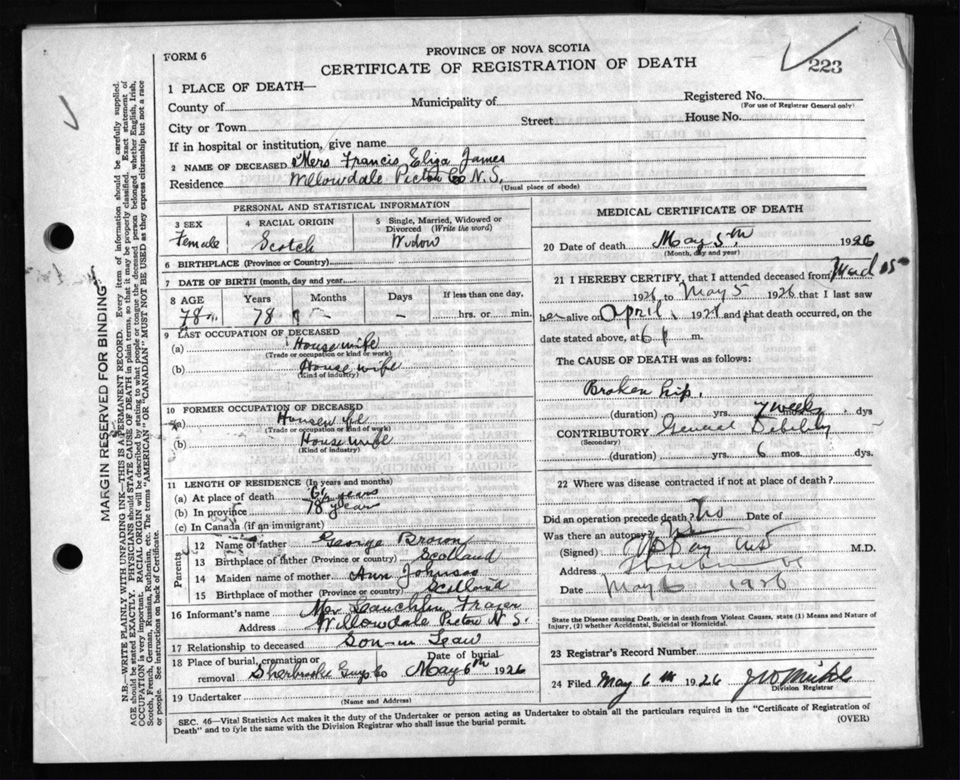 FORM 6
PROVINCE OF NOVA SCOTIA
CERTIFICATE OF REGISTRATION OF DEATH
223
1 PLACE OF DEATH—
County of
Municipality of
Registered No.
(For use of Registrar General only)
City or Town
Street
House No.
If in hospital or institution, give name
2 NAME OF DECEASED Mers Francis Eliza James
Residence Willowdale Pictou Co N.S.
(Usual place of abode)
PERSONAL AND STATISTICAL INFORMATION
3 SEX
Female
4 RACIAL ORIGIN
Scotch
5 Single, Married, Widowed or Divorced (Write the word)
Widow
6 BIRTHPLACE (Province or Country)
7 DATE OF BIRTH (month, day and year)
8 AGE Years Months Days If less than one day,
78 78 — — hrs. or min.
9 LAST OCCUPATION OF DECEASED
(a) Housewife
(Trade or occupation or kind or work)
(b) House wife
(Kind of industry)
10 FORMER OCCUPATION OF DECEASED
(a) Housewife
(Trade or occupation or kind of work)
(b) House wife
(Kind of industry)
11 LENGTH OF RESIDENCE (In years and months)
(a) At place of death years
(b) In province 78 years
(c) In Canada (if an immigrant)
Parents
12 Name of father George Brown
13 Birthplace of father (Province or Country) Scotland
14 Maiden name of mother Ann Johnson
15 Birthplace of mother (Province or Country) Scotland
16 Informant's name Mr Lauchlin Fraser
Address Willowdale Pictou N.S.
17 Relationship to deceased Son-in Leaw
18 Place of burial, cremation or removal Sherbrooke Guys Co
Date of burial May 6th 1926
19 Undertaker
(Name and Address)
MEDICAL CERTIFICATE OF DEATH
20 Date of death May 5th 1926
(Month, day and year)
21 I HEREBY CERTIFY, that I attended deceased from
1926 to May 5 1926 that I last saw
her alive on April 192 and that death occurred, on
date stated above, at 6 P m.
The CAUSE OF DEATH was as follows:
Broken hip.
(duration) yrs. 7 weeks mos. dys
CONTRIBUTORY General Debility
(Secondary)
(duration) yrs. 6 mos. dys.
22 Where was disease contracted if not at place of death?
Did an operation precede death? No Date of
Was there an autopsy?
(Signed) M.D.
Address
Date May 6 1926
State the Disease causing Death, or in death from Violent Causes, state (1) Means and Nature of Injury, (2) whether Accidental, Suicidal or Homicidal.
23 Registrar's Record Number
24 Filed May 6th 1926
Division Registrar
SEC. 46—Vital Statistics Act makes it the duty of the Undertaker or person acting as Undertaker to obtain all the particulars required in the "Certificate of Registration of
Death" and to fyle the same with the Division Registrar who shall issue the burial permit.
(OVER)
MARGIN RESERVED FOR BINDING
N.B.—WRITE PLAINLY WITH UNFADING INK—THIS IS A PERMANENT RECORD. Every item of information should be carefully supplied.
AGE should be stated EXACTLY. PHYSICIANS should STATE CAUSE OF DEATH in plain terms, so that it may be properly classified. Exact statement of
OCCUPATION is very important. RACIAL ORIGIN will be described by stating to what people or tongue the deceased person belonged whether English, Irish,
Scotch, French, German, Russian, Ruthenian, etc. The terms "AMERICAN" OR "CANADIAN" MUST NOT BE USED as they express citizenship but not a race
or people. See instructions on back of Certificate.